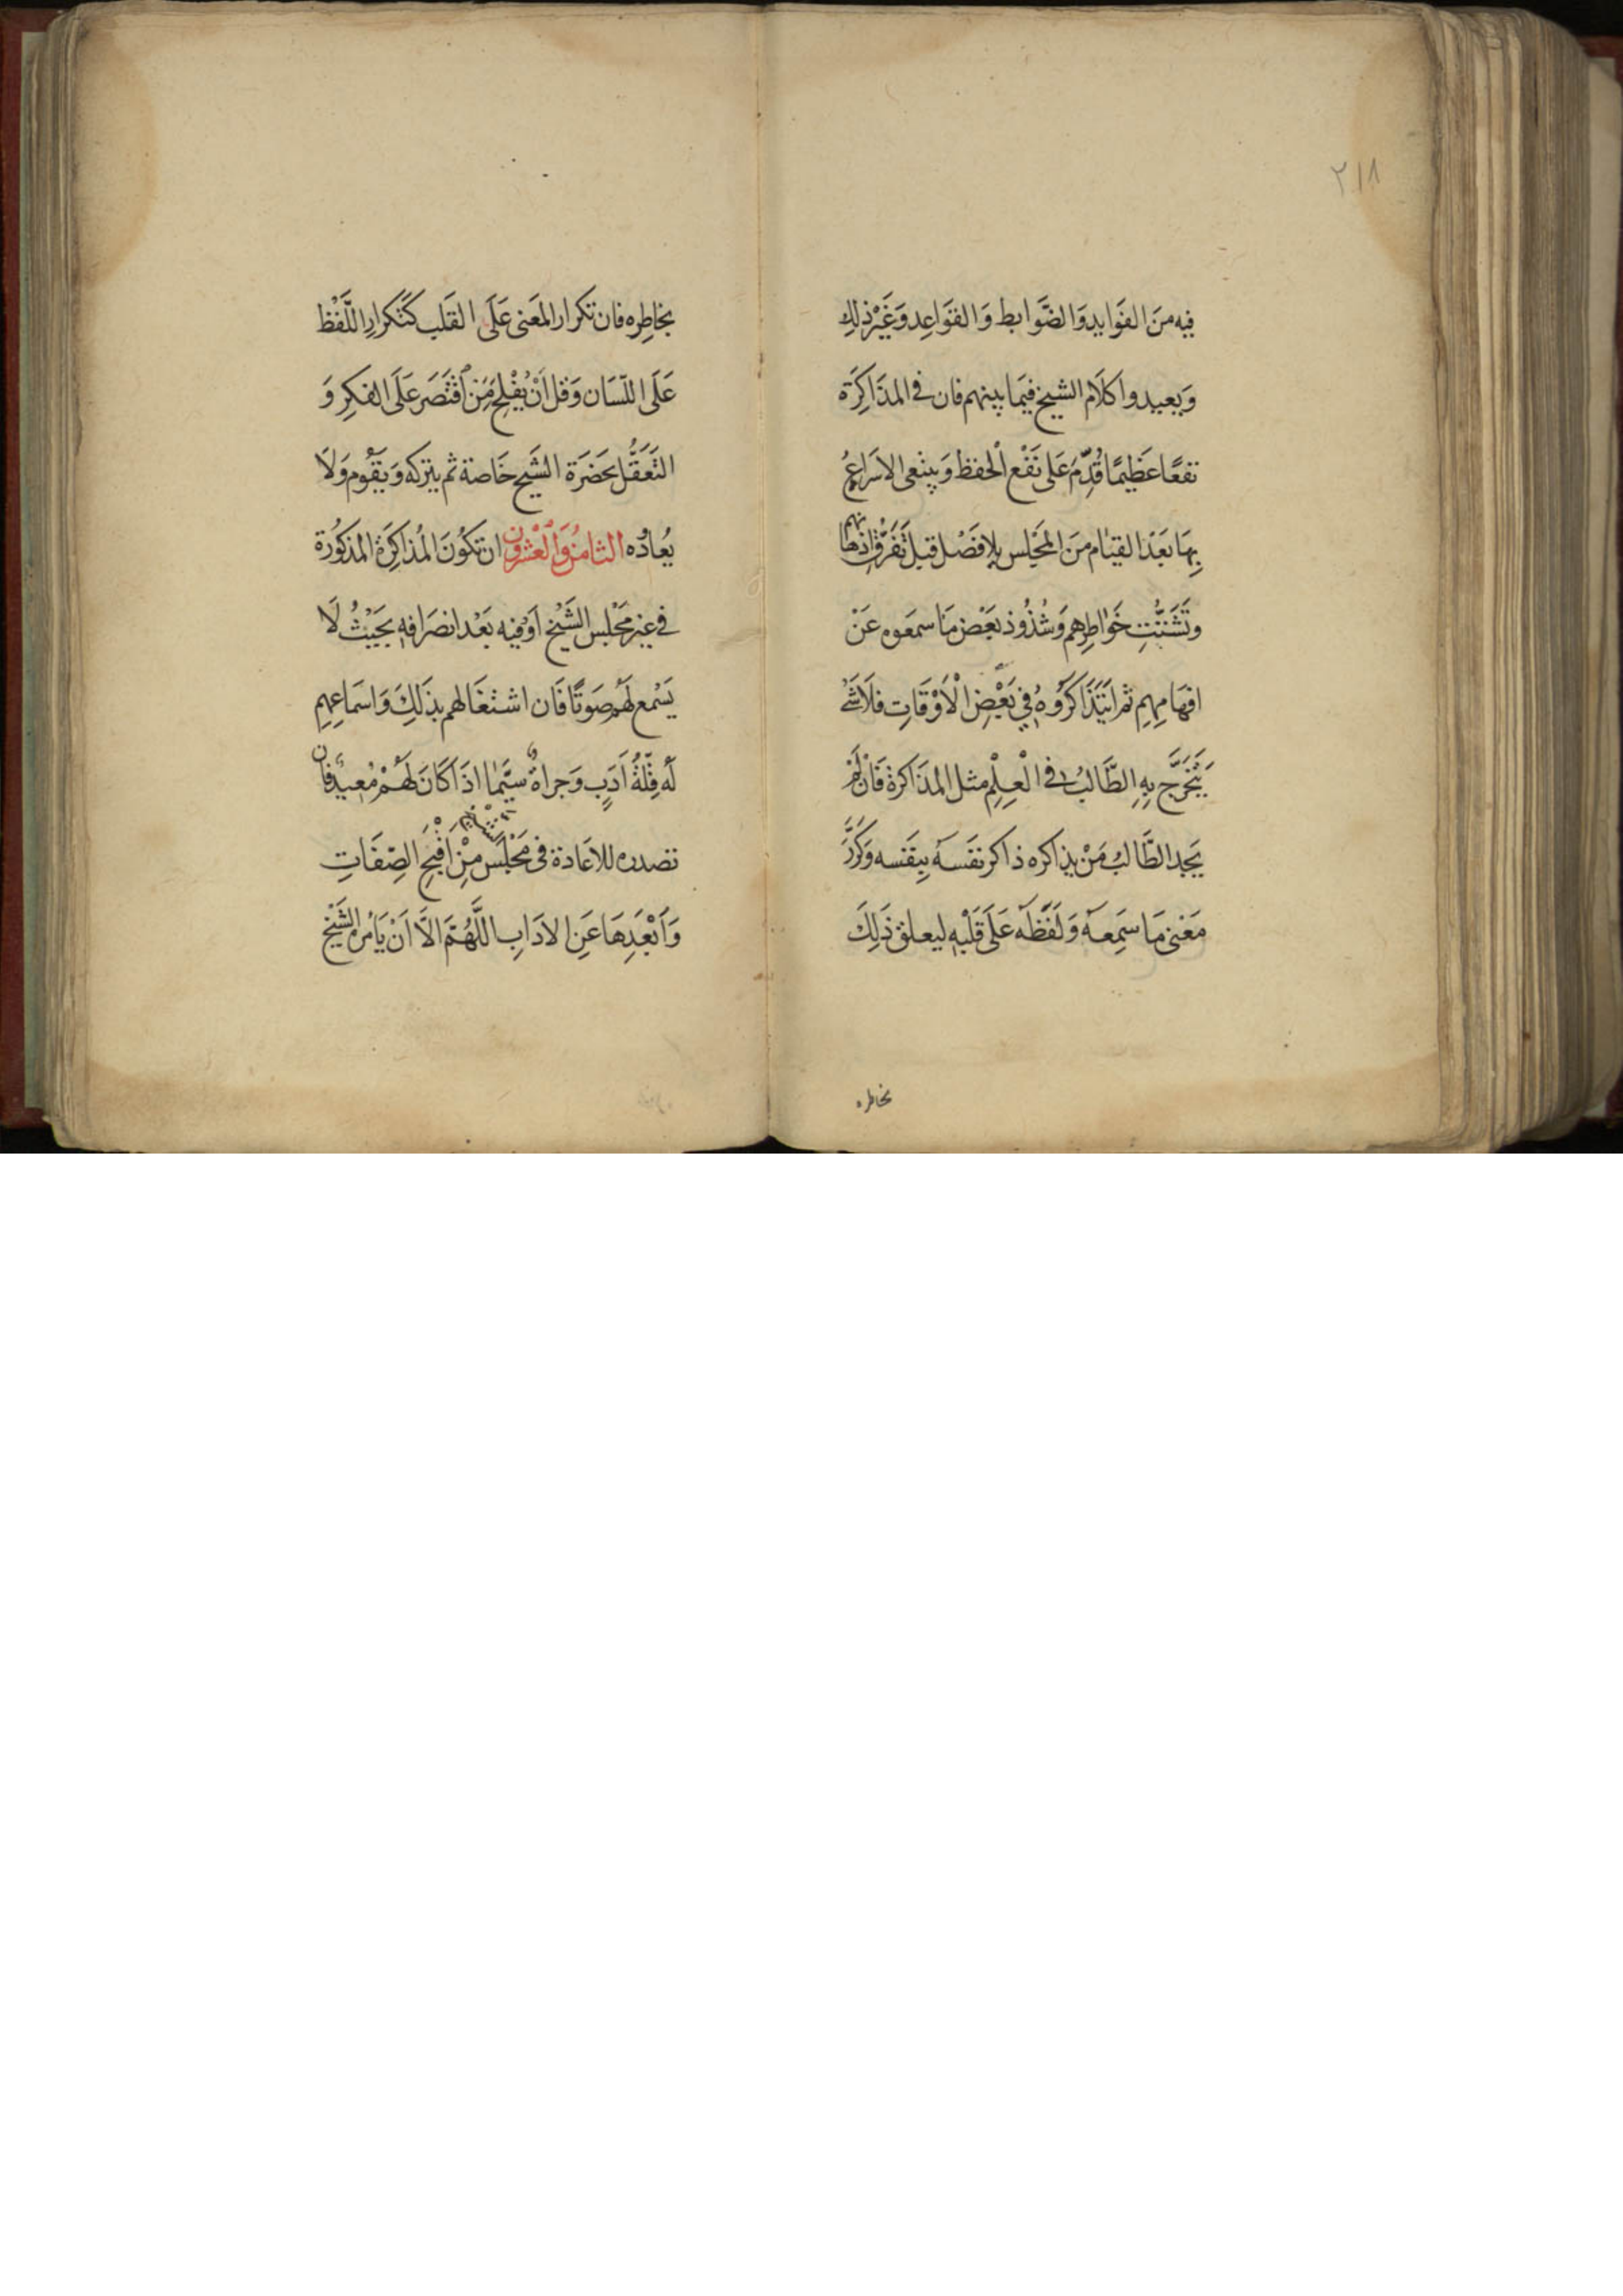 ٢١٨
فيه مِنَ الفَوَايدِ وَالضَّوَابط وَالقَوَاعِد وَغَيْرِ ذلِك
وَيعيدوا كَلَام الشيخ فيمَا بينهم فان في المذَاكِرَة
نفعًا عَظِيمًا قُدِّمَ عَلى نَفْعِ الْحفظ وَينبغى الاسَراعُ
بِهَا بَعْدَ القيَام مِنَ المَجْلِس بِلا فَصْل قبل تَفَرُّقِ اذهانهم
وتَشَتُّتِ خَوَاطِرِهم وَشُذُوذ بَعْض مَا سمعَوه عَنْ
افهَامِهِم ثم ايَتَذَاكَرُوهُ فِي بَعْضِ الْأَوْقَاتِ فلَا شَئ
يَتَخَرَّج بِهِ الطَّالبُ في الْعِلْمِ مثل المذَاكرة فَانْ لَم
يَجِدِ الطَّالبُ مَنْ يذاكره ذاكر نفَسَهُ بِنفَسه وَكرَّرَ
مَعْنى مَا سَمِعَهُ وَلَفَظَهُ عَلَى قَلْبِهِ ليعلق ذَلِكَ
بخاطره
بخَاطِرِه فان تكرار المَعنى عَلَى القَلب كَتكرارِ اللَّفْظ
عَلَى اللّسَان وَقل أَنْ يُفْلِحَ مَنِ اقْتَصَرَ عَلَى الفكِرِ وَ
التَّعَقُّل بحَضَرَة الشَيخ خَاصة ثم يتركه وَيقُوم وَلَا
يُعاوُده الثامنُ وَالْعشْرُون ان تكُونَ المُذاكِرَة المذكوُرة
في غير مَجْلِس الشَيْخ اَوْ فيه بَعْد انصَرَافهِ بحَيْثُ لَا
يَسْمع لَهُم صَوتًا فَان اشتغَالهم بذَلِكَ وَاسَماعِهِمِ
لَهُ قِلّةُ اَدَبٍ وَجراةٌ سيَّمَا اذَا كَانَ لَهُمْ مُعيدٌ فان
تصدره للاعَادة فى مَجْلسَ شَيخه مِنْ اَقْبَحِ الصِّفَاتِ
وَاَبْعَدِهَا عَنِ الادَابِ اللَّهُمَّ الَّا اَنْ يَامُره الشَيْخ